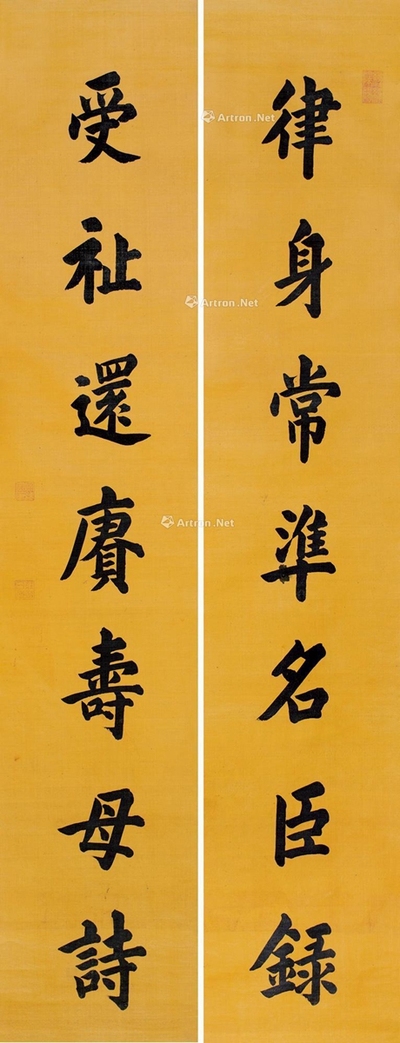 律身常準名臣錄
受祉還賡壽母詩
Artron.Net
Artron.Net
Artron.Net